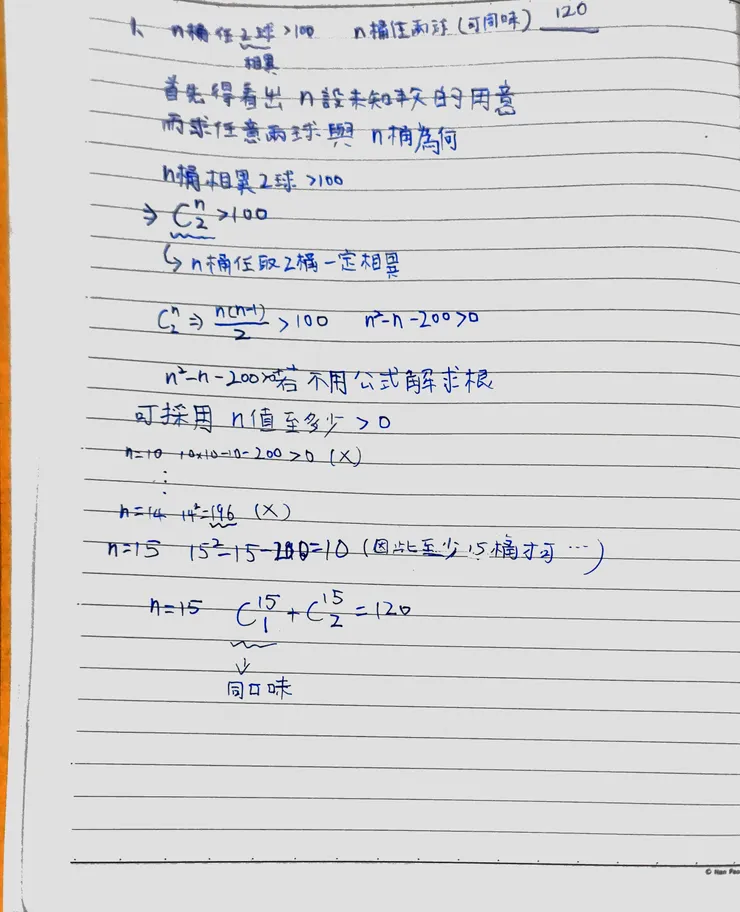 1、 n桶任2球>100 n桶任兩球(可同味) 120
相異
首先得看出 n設未知數的用意
而求任意兩球與 n桶為何
n桶相異2球>100
⇒ C^n_2 >100
↳ n桶任取2桶一定相異
C^n_2 ⇒ n(n-1)/2 > 100 n²-n-200>0
n²-n-200>0若不用公式解求根
可採用 n值至多少 > 0
n=10 10×10-10-200>0 (X)
⋮
n=14 14²=196 (X)
n=15 15²-15-200=10 (因此至少15桶才可…)
n=15 C^15_1 + C^15_2 = 120
↓
同口味